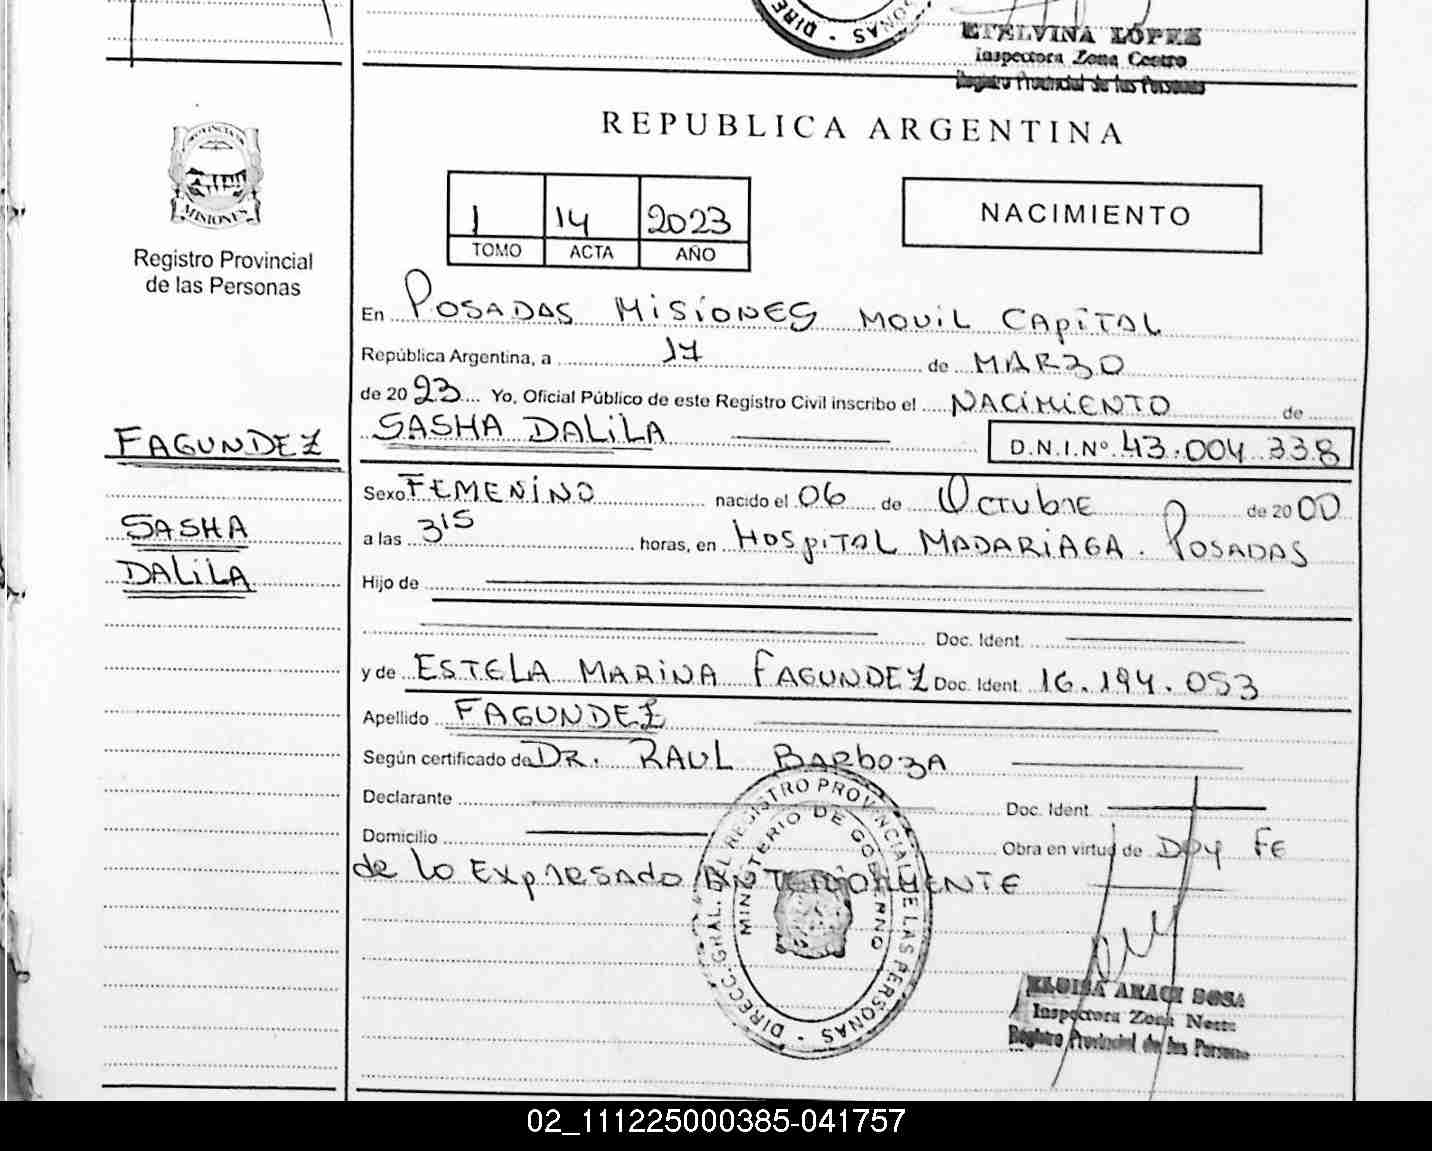 ETELVINA LÓPEZ
Inspectora Zona Centro
Registro Provincial de las Personas
PROVINCIA DE
MISIONES
Registro Provincial
de las Personas
REPUBLICA ARGENTINA
1 14 2023
TOMO ACTA AÑO
NACIMIENTO
En POSADAS MISIONES MOVIL CAPITAL
República Argentina, a 17 de MARZO
de 20 23 Yo, Oficial Público de este Registro Civil inscribo el NACIMIENTO de
SASHA DALILA D.N.I.Nº 43.004.338
FAGUNDEZ
SASHA
DALILA
Sexo FEMENINO nacido el 06 de OCTUBRE de 20 00
a las 3 15 horas, en HOSPITAL MADARIAGA. POSADAS
Hijo de
Doc. Ident.
y de ESTELA MARINA FAGUNDEZ Doc. Ident. 16.194.053
Apellido FAGUNDEZ
Según certificado de DR. RAUL BARBOZA
Declarante Doc. Ident.
Domicilio Obra en virtud de DOY FE
de lo EXPRESADO ANTERIORMENTE
DIRECC. GRAL. DEL REGISTRO PROVINCIAL DE LAS PERSONAS
MINISTERIO DE GOBIERNO
ELOISA ARACI SOSA
Inspectora Zona Neste
Registro Provincial de las Persona
02_111225000385-041757